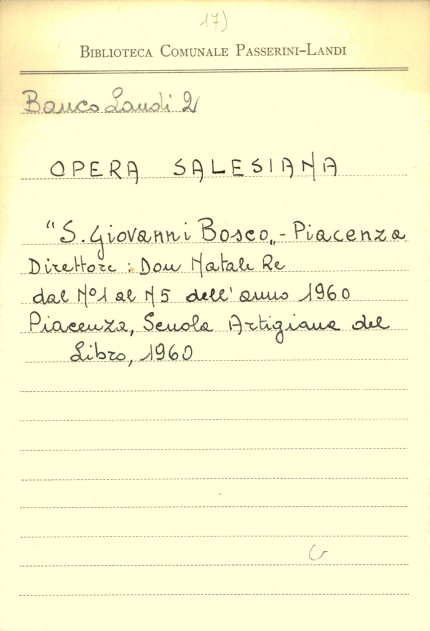 17)
BIBLIOTECA COMUNALE PASSERINI-LANDI
Banco Landi 2
OPERA SALESIANA
"S. Giovanni Bosco„ - Piacenza
Direttore: Don Natale Re
dal N°1 al N5 dell'anno 1960
Piacenza, Scuola Artigiana del
Libro, 1960